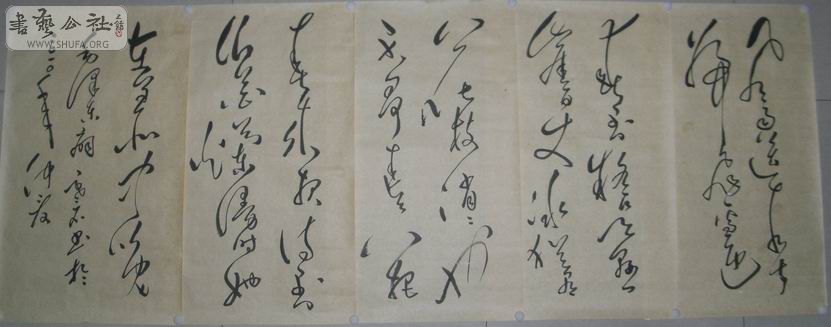 書藝公社
WWW.SHUFA.ORG
风雨送春归
飞雪迎
春到已是悬
崖百丈冰犹有
花枝俏俏也
不争春只把
春来报待到
山花烂漫时她
在丛中笑
毛泽东词
书于
年